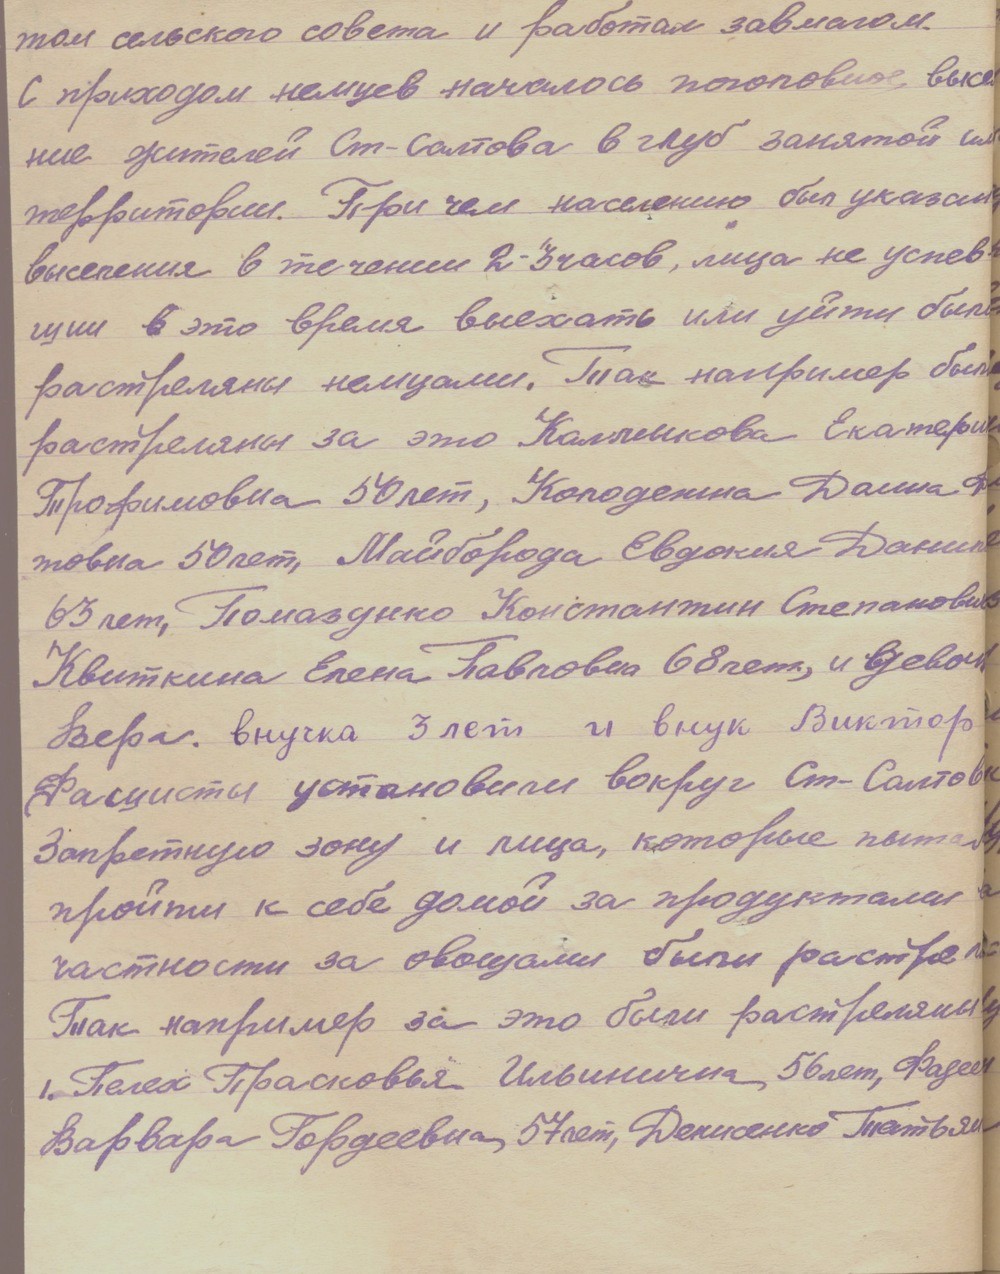 том сельского совета и работал завмагом.
С приходом немцев началось поголовное высе
ние жителей Ст-Салтова в глуб занятой им
территории. При чем населению был указан
выселения в течении 2-3 часов, лица не успев-
шии в это время выехать или уйти были
растреляны немцами. Так например были
растреляны за это Калмыкова Екатерин
Трофимовна 50 лет, Колодежна
товна 50 лет, Майборода Евдокия Данило
63 лет, Помазунко Константин Степанович
Квиткина Елена Павловна 68 лет, и
Вера. внучка 3 лет и внук Виктор
Фашисты установили вокруг Ст-Салтов
Запретную зону и лица, которые пыта
пройти к себе домой за продуктами
частности за овощами были растреля
Так например за это были растреляны
1. Пелех Прасковья Ильинична, 56 лет, Фадеен
Варвара Гордеевна, 57 лет, Денисенко Татьян